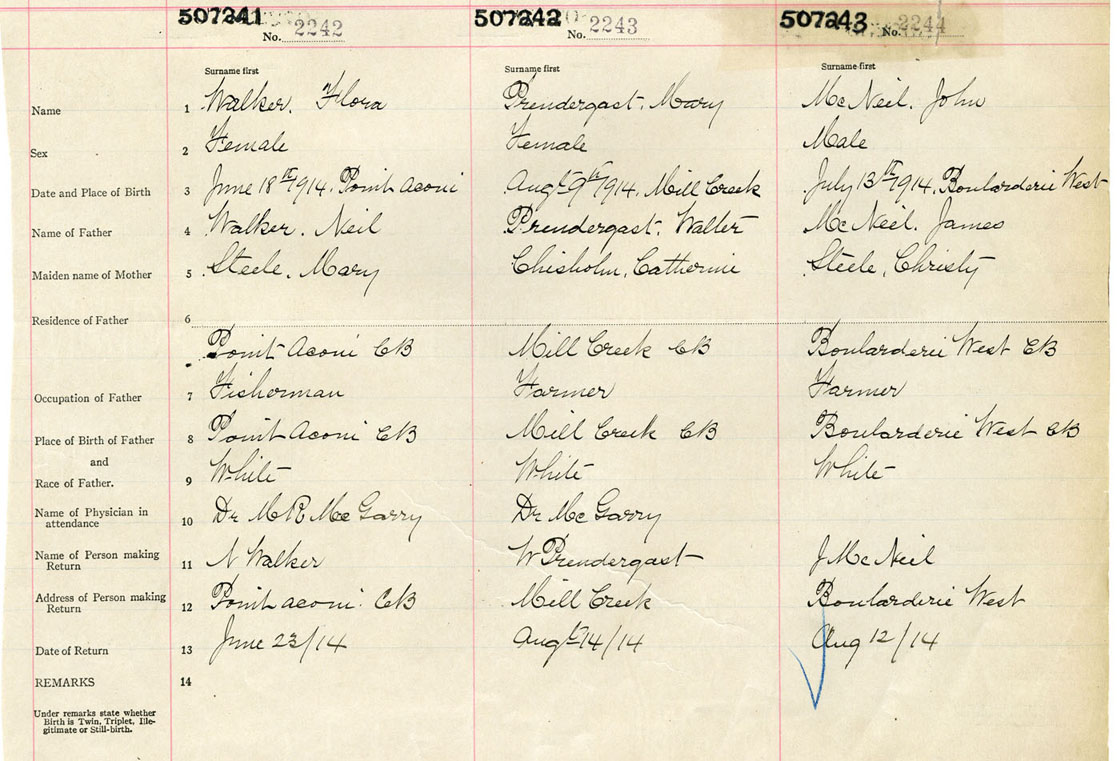 507241 No. 2242 507242 No. 2243 507243 No. 2244
Surname first Surname first Surname first
Name 1 Walker, Flora Prendergast, Mary McNeil, John
Sex 2 Female Female Male
Date and Place of Birth 3 June 18th 1914. Point Aconi Augt 9th 1914. Mill Creek July 13th 1914. Boularderie West
Name of Father 4 Walker, Neil Prendergast, Walter McNeil, James
Maiden name of Mother 5 Steele, Mary Chisholm, Catherine Steele, Christy
Residence of Father 6
Point Aconi CB Mill Creek CB Boularderie West CB
Occupation of Father 7 Fisherman Farmer Farmer
Place of Birth of Father 8 Point Aconi CB Mill Creek CB Boularderie West CB
and
Race of Father. 9 White White White
Name of Physician in
attendance 10 Dr M R McGarry Dr McGarry
Name of Person making
Return 11 N Walker W Prendergast J McNeil
Address of Person making
Return 12 Point Aconi CB Mill Creek Boularderie West
Date of Return 13 June 23/14 Augt 14/14 Aug 12/14
REMARKS 14
Under remarks state whether
Birth is Twin, Triplet, Ille-
gitimate or Still-birth.